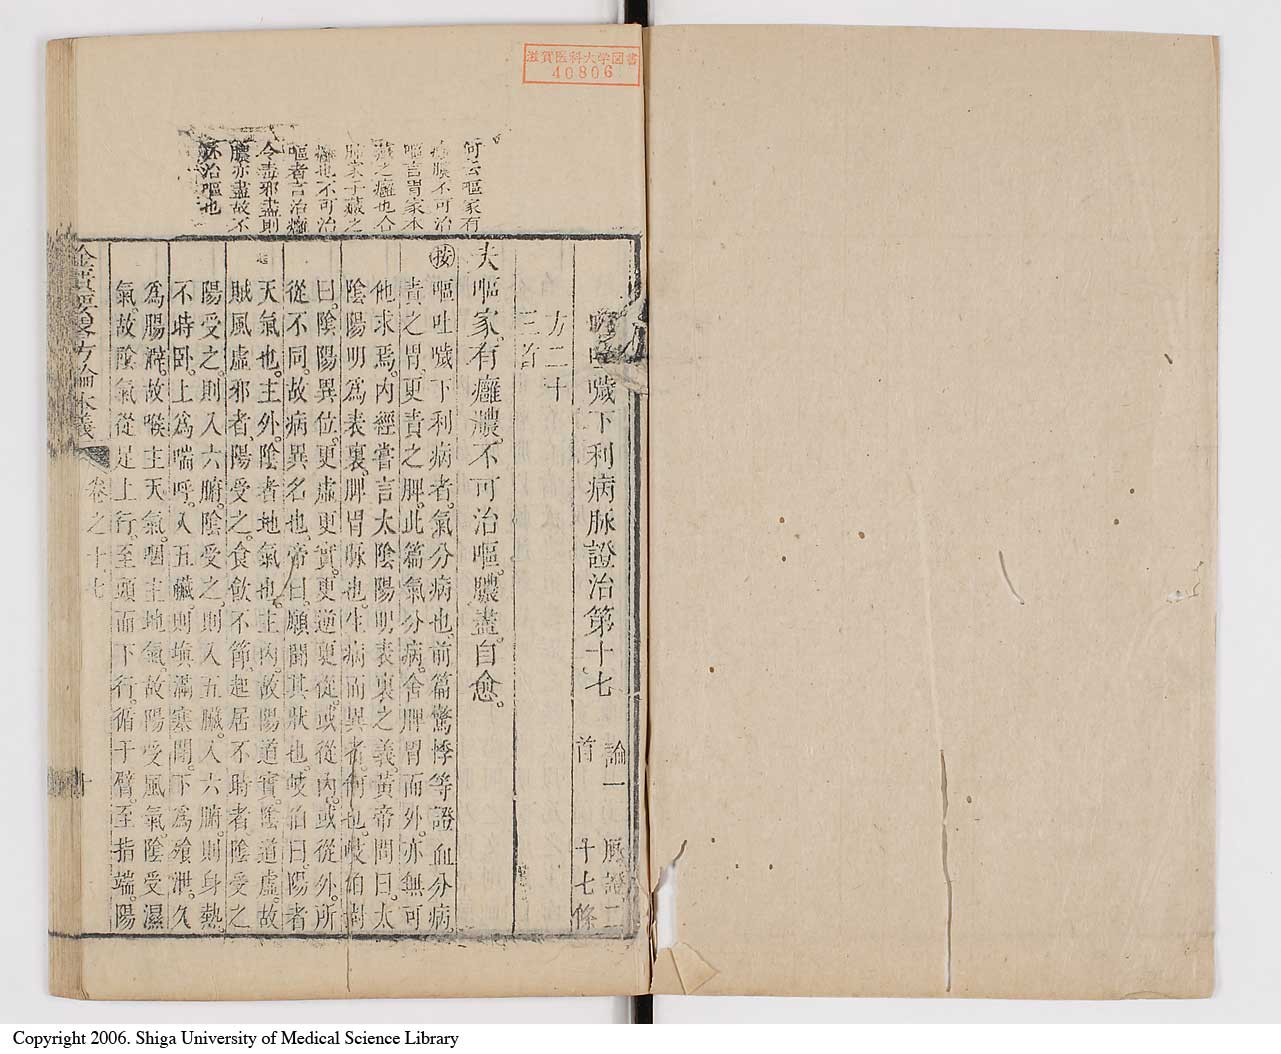 滋賀医科大学図書
40806
何云嘔家有
癰膿不可治
嘔言胃家本
藏之癰也合
癰也不可治
嘔者言治癰
令毒邪盡則
膿亦盡故不
必治嘔也
嘔吐噦下利病脉證治第十七 論一首 脉證二十七條
方二十三首
夫嘔家有癰膿。不可治嘔。膿盡自愈。
按嘔吐噦下利病者。氣分病也。前篇驚悸等證。血分病。
責之胃。更責之脾。此篇氣分病。舍脾胃而外。亦無可
他求焉。內經嘗言太陰陽明表裏之義。黃帝問曰。太
陰陽明爲表裏。脾胃脉也。生病而異者。何也。岐伯對
曰。陰陽異位。更虛更實。更逆更從。或從內。或從外。所
從不同。故病異名也。帝曰。願聞其狀也。岐伯曰。陽者
天氣也。主外。陰者地氣也。主內。故陽道實。陰道虛。故
賊風虛邪者。陽受之。食飲不節。起居不時者。陰受之
陽受之。則入六腑。陰受之。則入五臟。入六腑。則身熱。
不時卧。上爲喘呼。入五臟。則䐜滿塞閉。下爲飱泄。久
爲腸澼。故喉主天氣。咽主地氣。故陽受風氣。陰受濕
氣。故陰氣從足上行。至頭而下行。循于臂。至指端。陽
金匱要畧方論本義
卷之十七
十
Copyright 2006. Shiga University of Medical Science Library